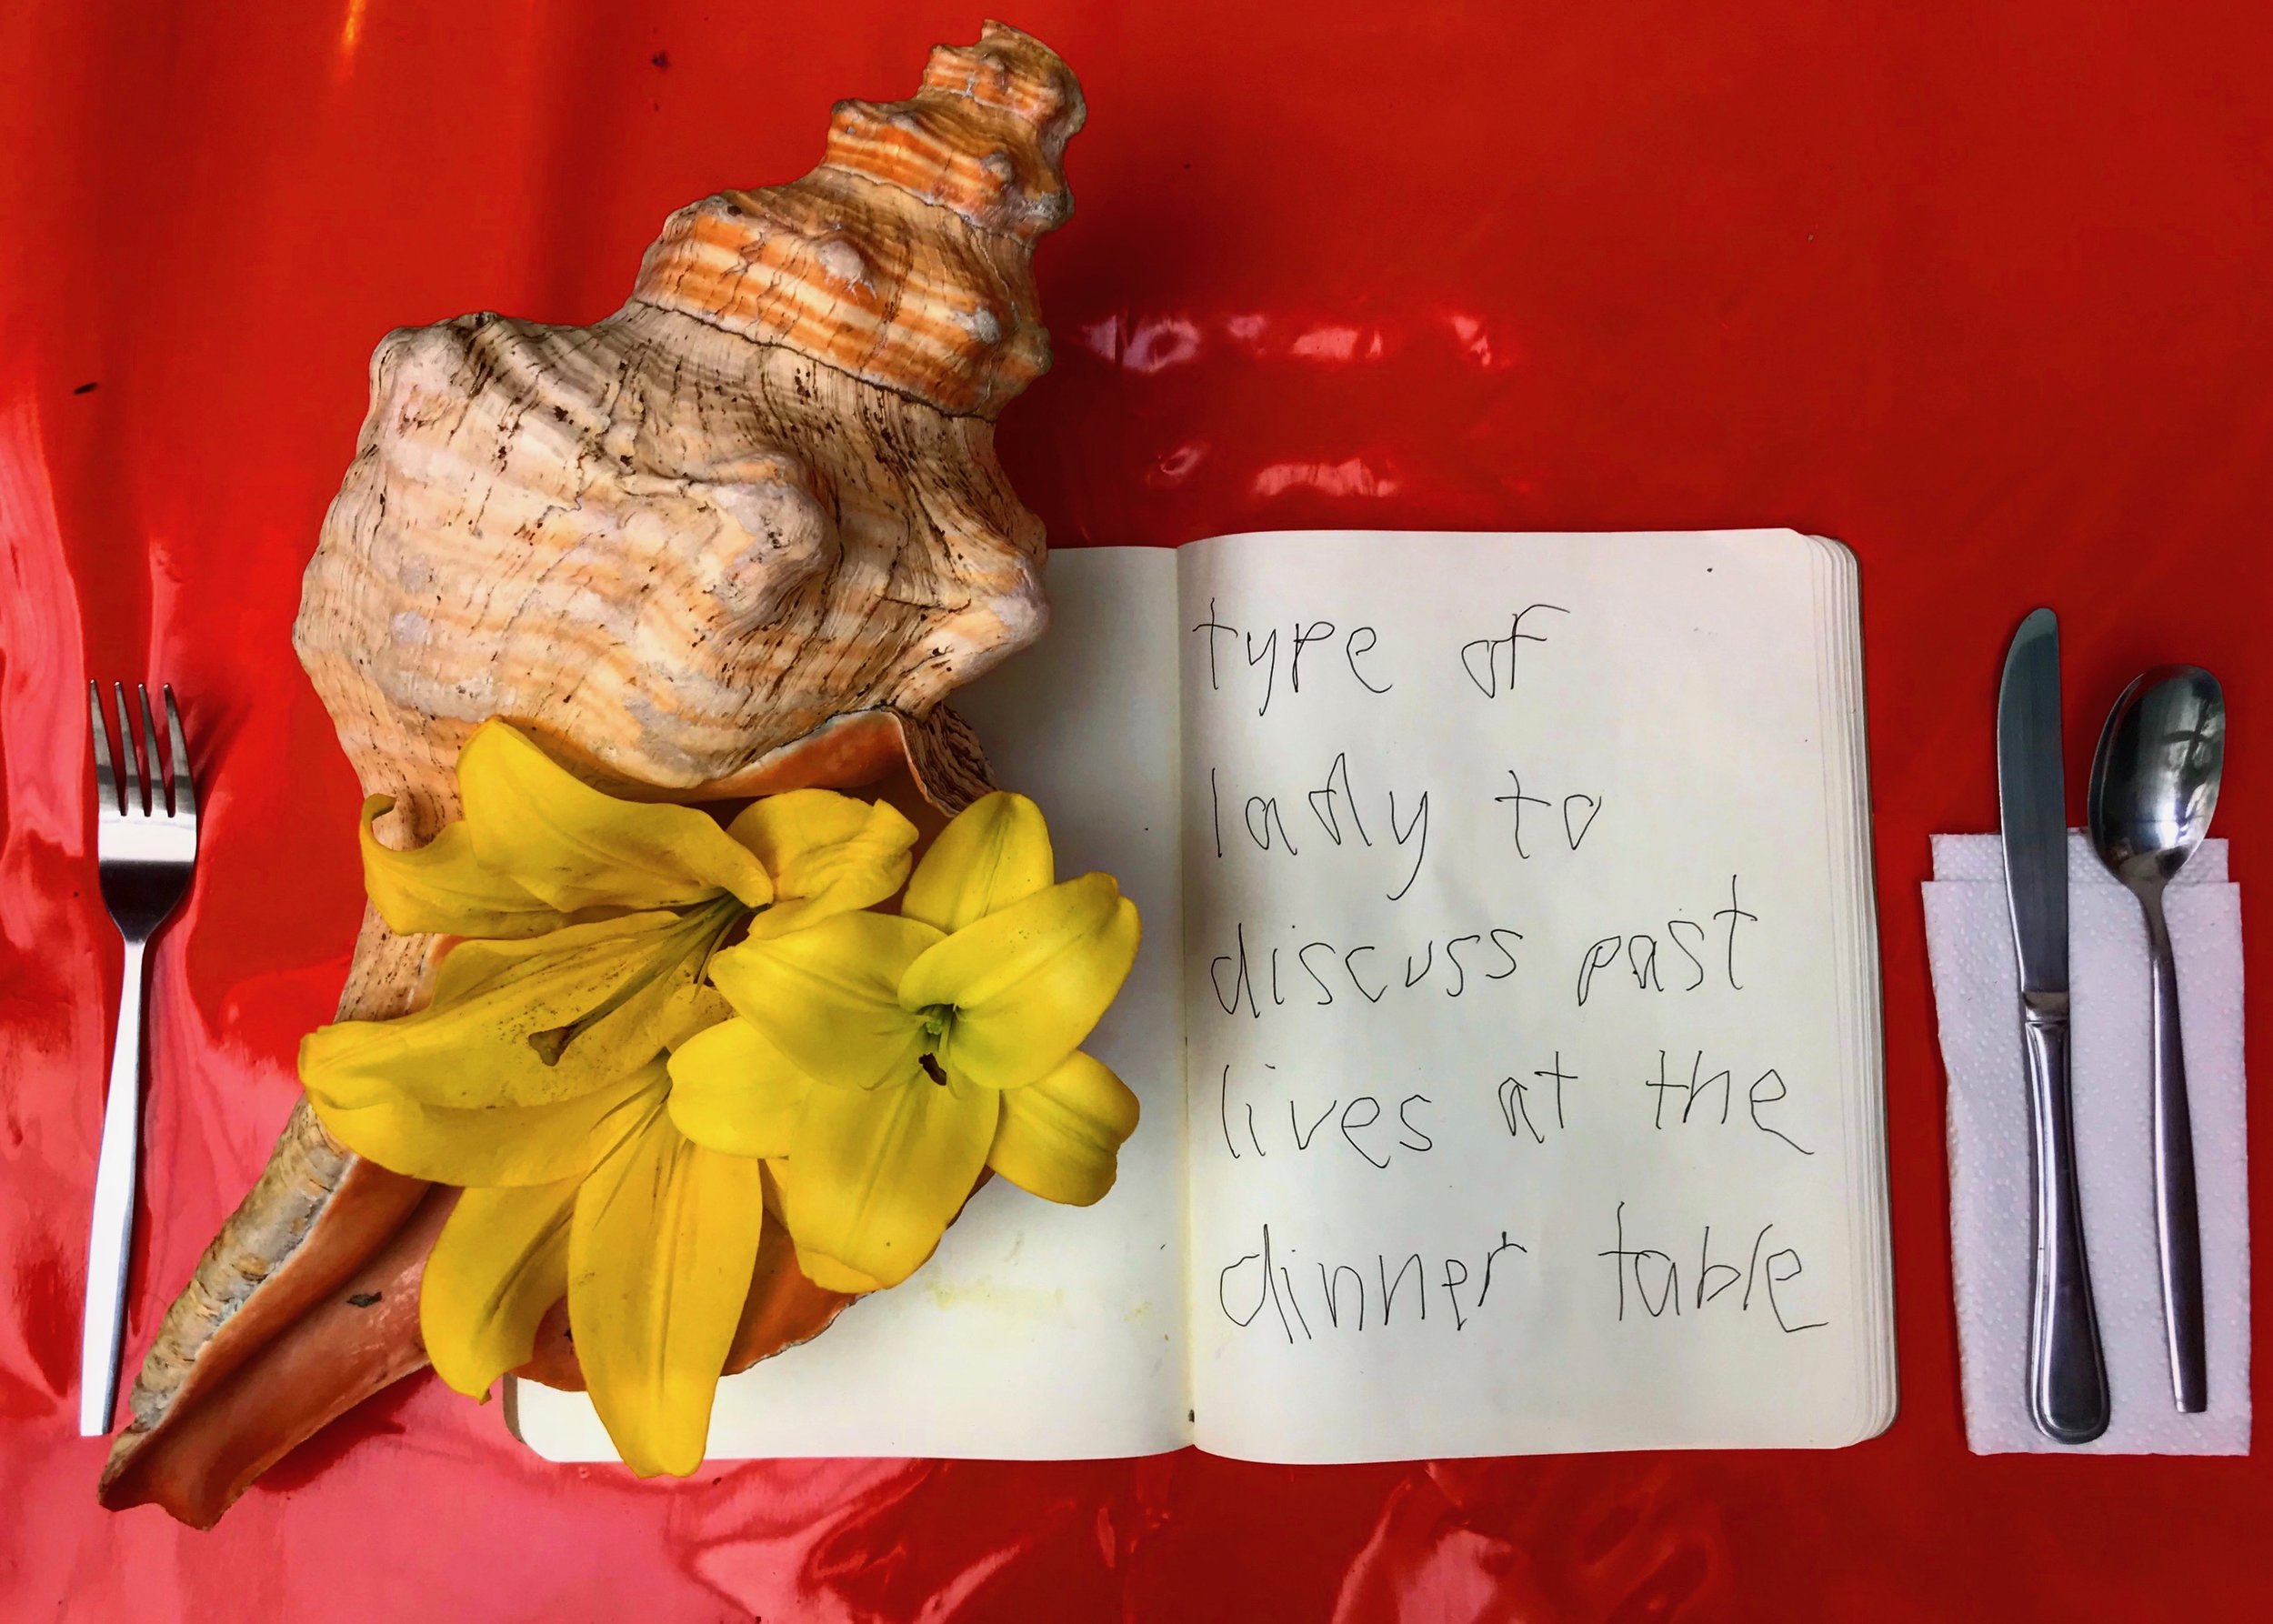 type of
lady to
discuss past
lives at the
dinner table